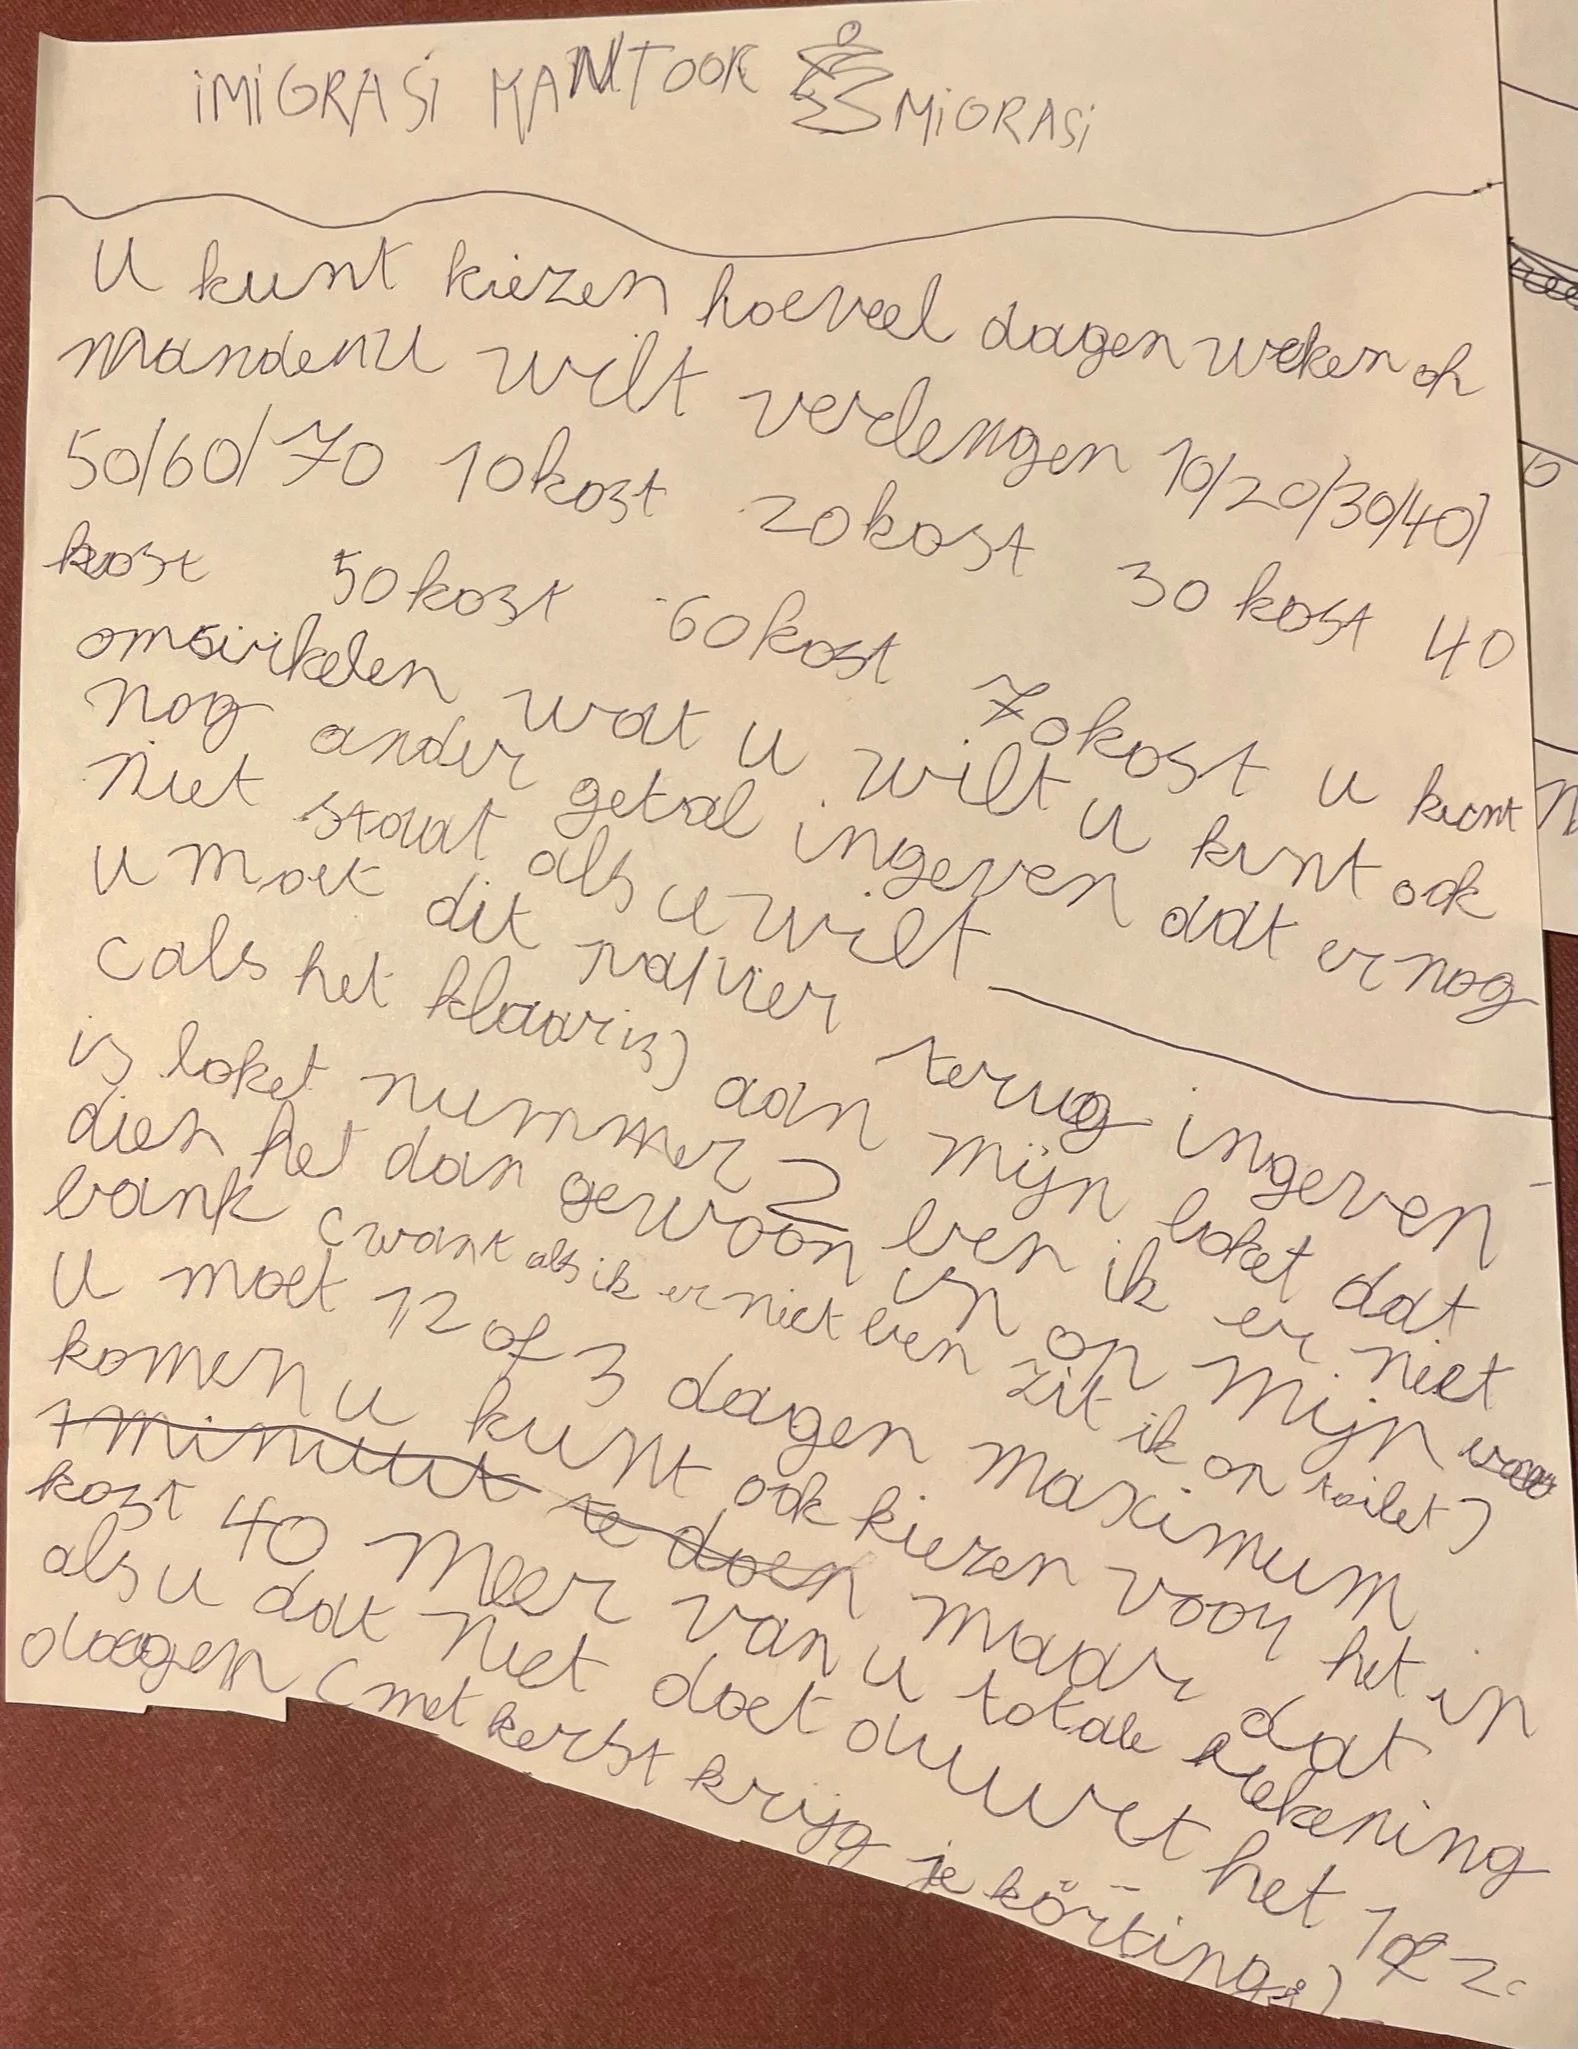 iMiGRASi KANTOOR
MiGRASi
U kunt kiezen hoeveel dagen weken of
manden U wilt verlengen 10/20/30/40/
50/60/70 10 kost 20 kost 30 kost 40
kost 50 kost 60 kost 70 kost u kunt
omsirkelen wat u wilt u kunt ook
nog ander getal ingeven dat er nog
niet staat als u wilt
u moet dit papier terug ingeven
(als het klaar is) aan mijn loket dat
is loket nummer 2 ben ik er niet
dien het dan gewoon in op mijn
bank (want als ik er niet ben zit ik op toilet)
U moet 12 of 3 dagen maximum
komen u kunt ook kiezen voor het in
1 minuut te doen maar dat
kost 40 meer van u totale rekening
als u dat niet doet duurt het 1 of 2
dagen (met kerst krijg je körtings)